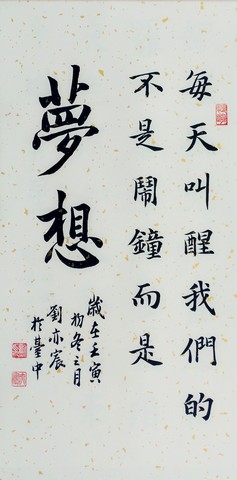 每天叫醒我們的
不是鬧鐘而是
夢想
歲在壬寅
初冬之月
劉亦宸
於臺中